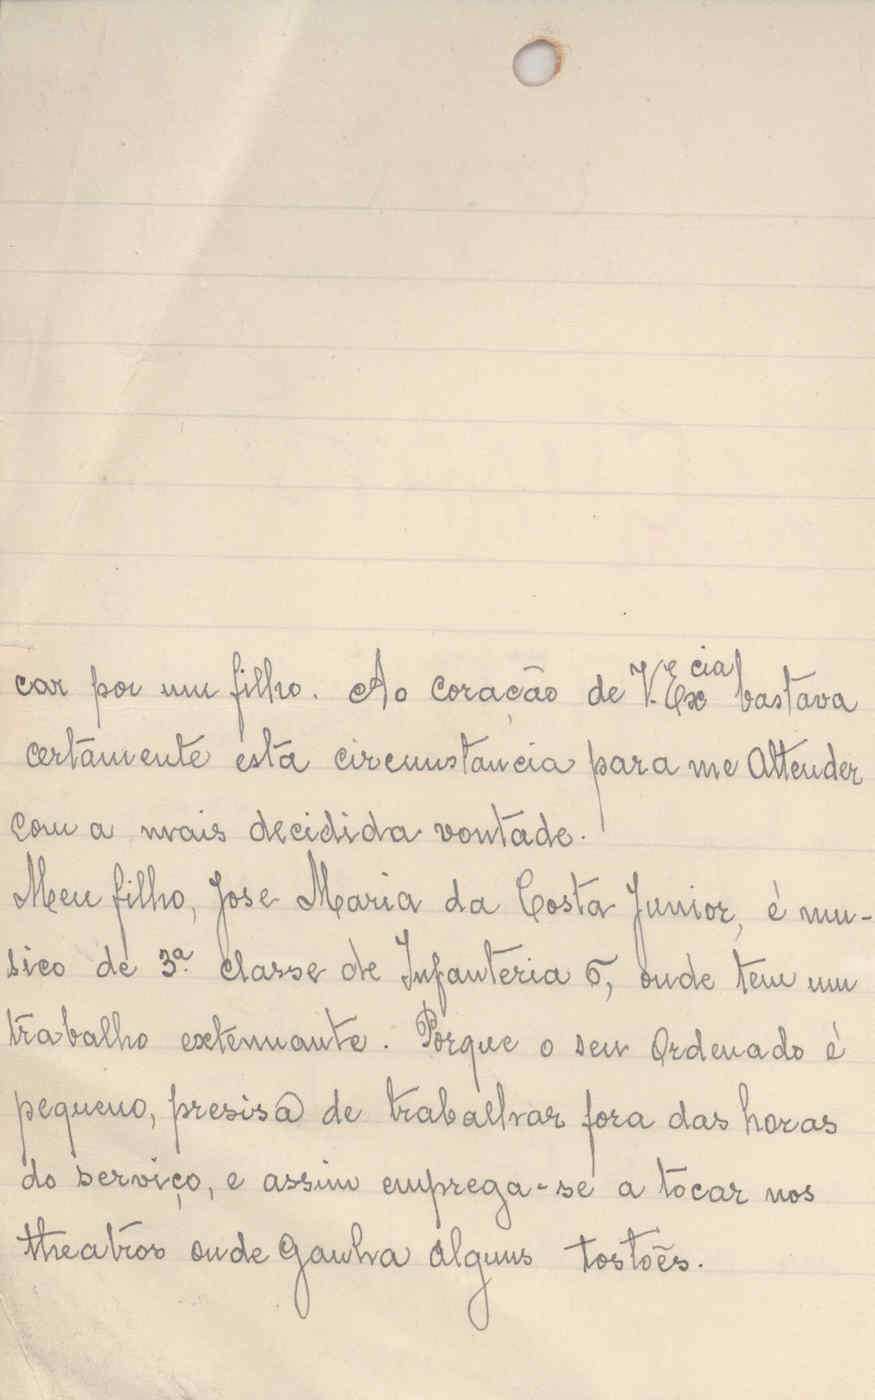 car por um filho. Ao coração de V. Excia bastava
certamente esta circumstancia para me attender
com a mais decidida vontade.
Meu filho, Jose Maria da Costa Junior, è mu-
sico de 3ª. classe de Infanteria 6, onde tem um
trabalho extenuante. Porque o seu Ordenado è
pequeno, presisa de trabalhar fora das horas
do serviço, e assim emprega-se a tocar nos
theatros onde ganha alguns tostões.